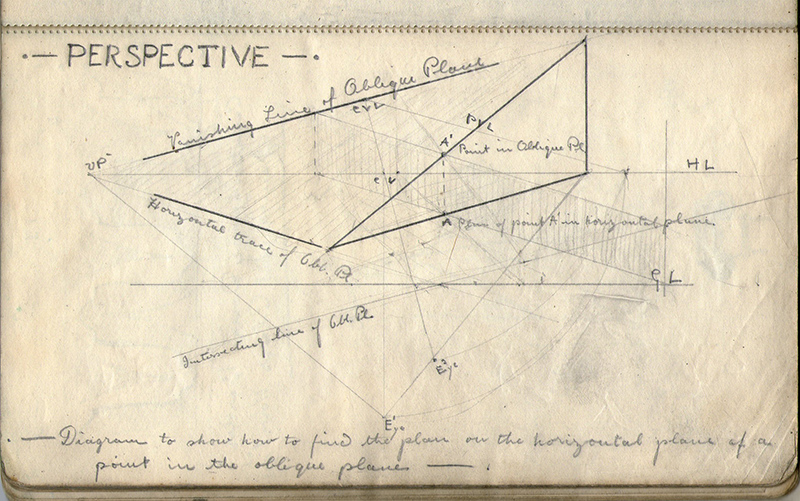 · — PERSPECTIVE — ·
Vanishing Line of Oblique Plane
C V L
P V L
A' Point in Oblique Pl
VP
C V
H L
Horizontal trace of Obl. Pl.
A Plan of point A' in horizontal plane
G L
Intersecting line of Obl. Pl.
E²ye
E'ye
· — Diagram to show how to find the plan on the horizontal plane of a
point in the oblique plane — .